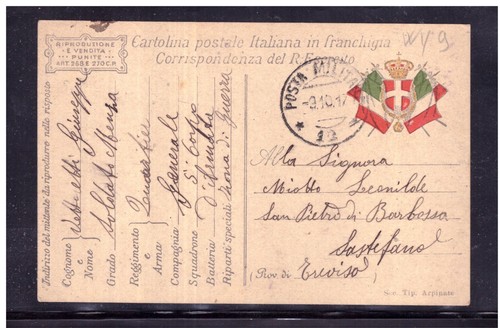 RIPRODUZIONE
E VENDITA
PUNITE
ART. 268 E 270 C.P.
Cartolina postale Italiana in franchigia
Corrispondenza del R. Esercito
POSTA MILITARE
-9.10.17
Indirizzo del mittente da riprodurre nelle risposte
Cognome e Nome Giuseppe
Grado Soldato Mensa
Reggimento e Arma
Compagnia Generale
Squadrone 5° Corpo
Batteria D'Armata
Riparti speciali Zona di Guerra
Alla Signora
Miotto Leonilde
San Pietro di Barbossa
Sastefano
(Prov. di Treviso)
Soc. Tip. Arpinate